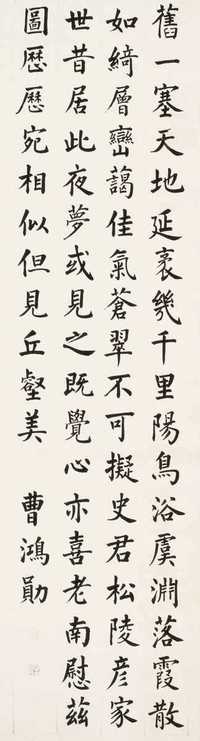 舊一塞天地延袤幾千里陽鳥浴虞淵落霞散
如綺層巒藹佳氣蒼翠不可擬史君松陵彥家
世昔居此夜夢或見之既覺心亦喜老南慰茲
圖歷歷宛相似但見丘壑美
曹鴻勛